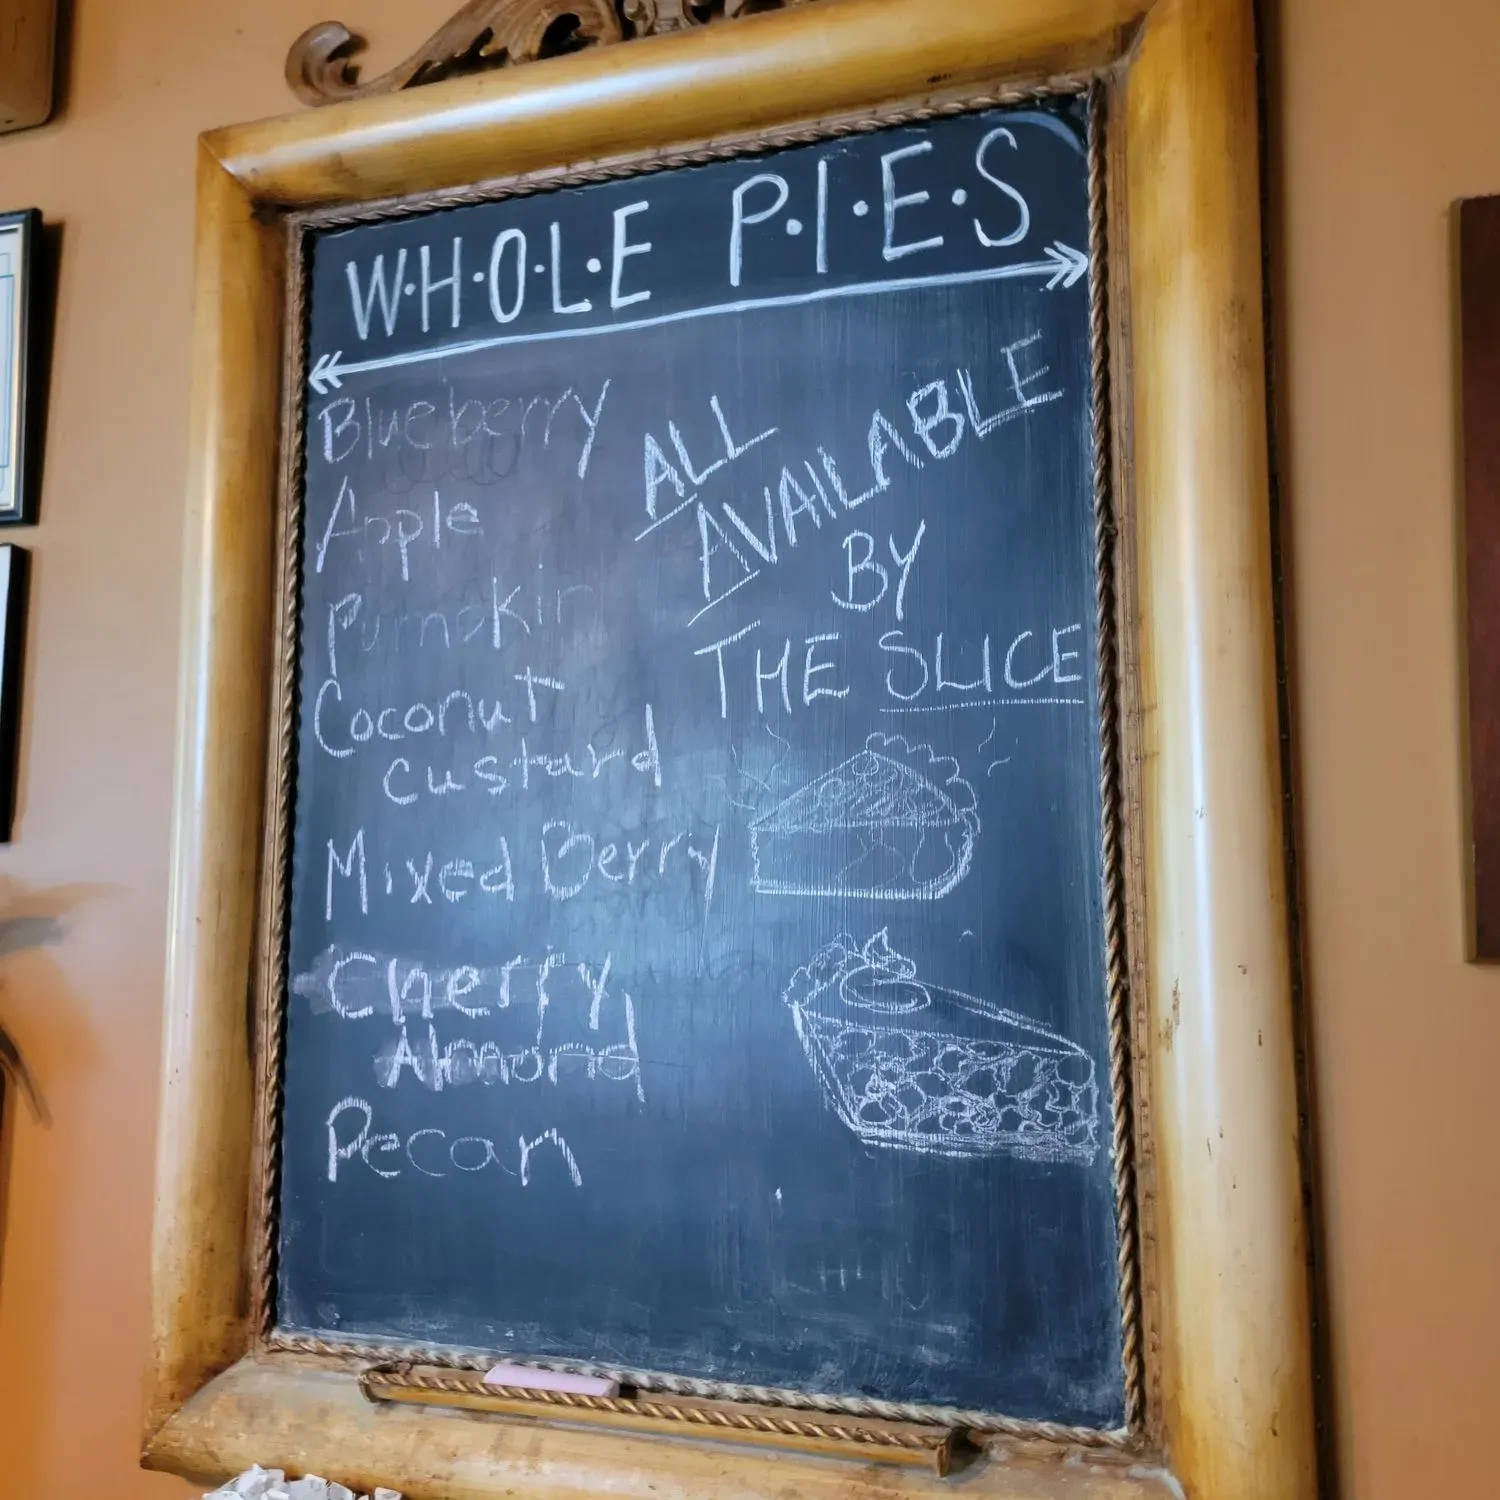 W·H·O·L·E P·I·E·S
Blueberry
Apple
Pumpkin
Coconut
custard
Mixed Berry
Cherry
Almond
Pecan
ALL
AVAILABLE
BY
THE SLICE